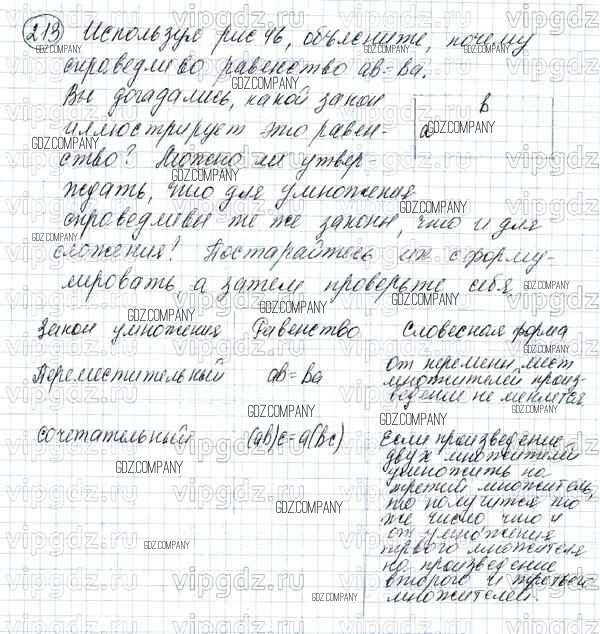 213 Используя рис 46, объясните, почему
справедливо равенство ab=ba.
Вы догадались, какой закон
иллюстрирует это равен-
ство? Можно ли утвер-
ждать, что для умножения
справедливы те же законы, что и для
сложения? Постарайтесь их сформу-
лировать, а затем проверьте себя.
b
a
Закон умножения Равенство Словесная форма
Переместительный ab=ba
От перемены мест
множителей произ-
ведение не меняется.
сочетательный (ab)c=a(bc)
Если произведение
двух множителей
умножить на
третий множитель,
то получится то
же число, что и
от умножения
первого множителя
на произведение
второго и третьего
множителей.
GDZ.COMPANY
vipgdz.ru